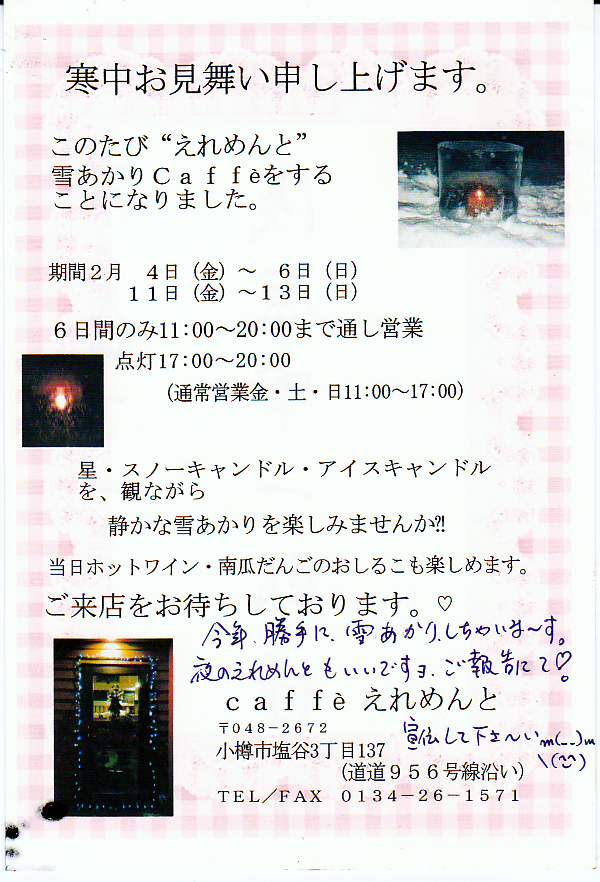 寒中お見舞い申し上げます。
このたび“えれめんと”
雪あかりＣａｆｆèをする
ことになりました。
期間２月　４日（金）～　６日（日）
１１日（金）～１３日（日）
６日間のみ11:00～20:00まで通し営業
点灯17:00～20:00
（通常営業金・土・日11:00～17:00）
星・スノーキャンドル・アイスキャンドル
を、観ながら
静かな雪あかりを楽しみませんか⁈
当日ホットワイン・南瓜だんごのおしるこも楽しめます。
ご来店をお待ちしております。♡
今年、勝手に、雪あかり、しちゃいま～す。
夜のえれめんともいいですヨ、ご報告にて♡!
ｃａｆｆè えれめんと
〒048-2672
宣伝して下さ～い m(_ _)m
小樽市塩谷3丁目137
（道道９５６号線沿い）
\(^^)
ＴＥＬ／ＦＡＸ　０１３４－２６－１５７１